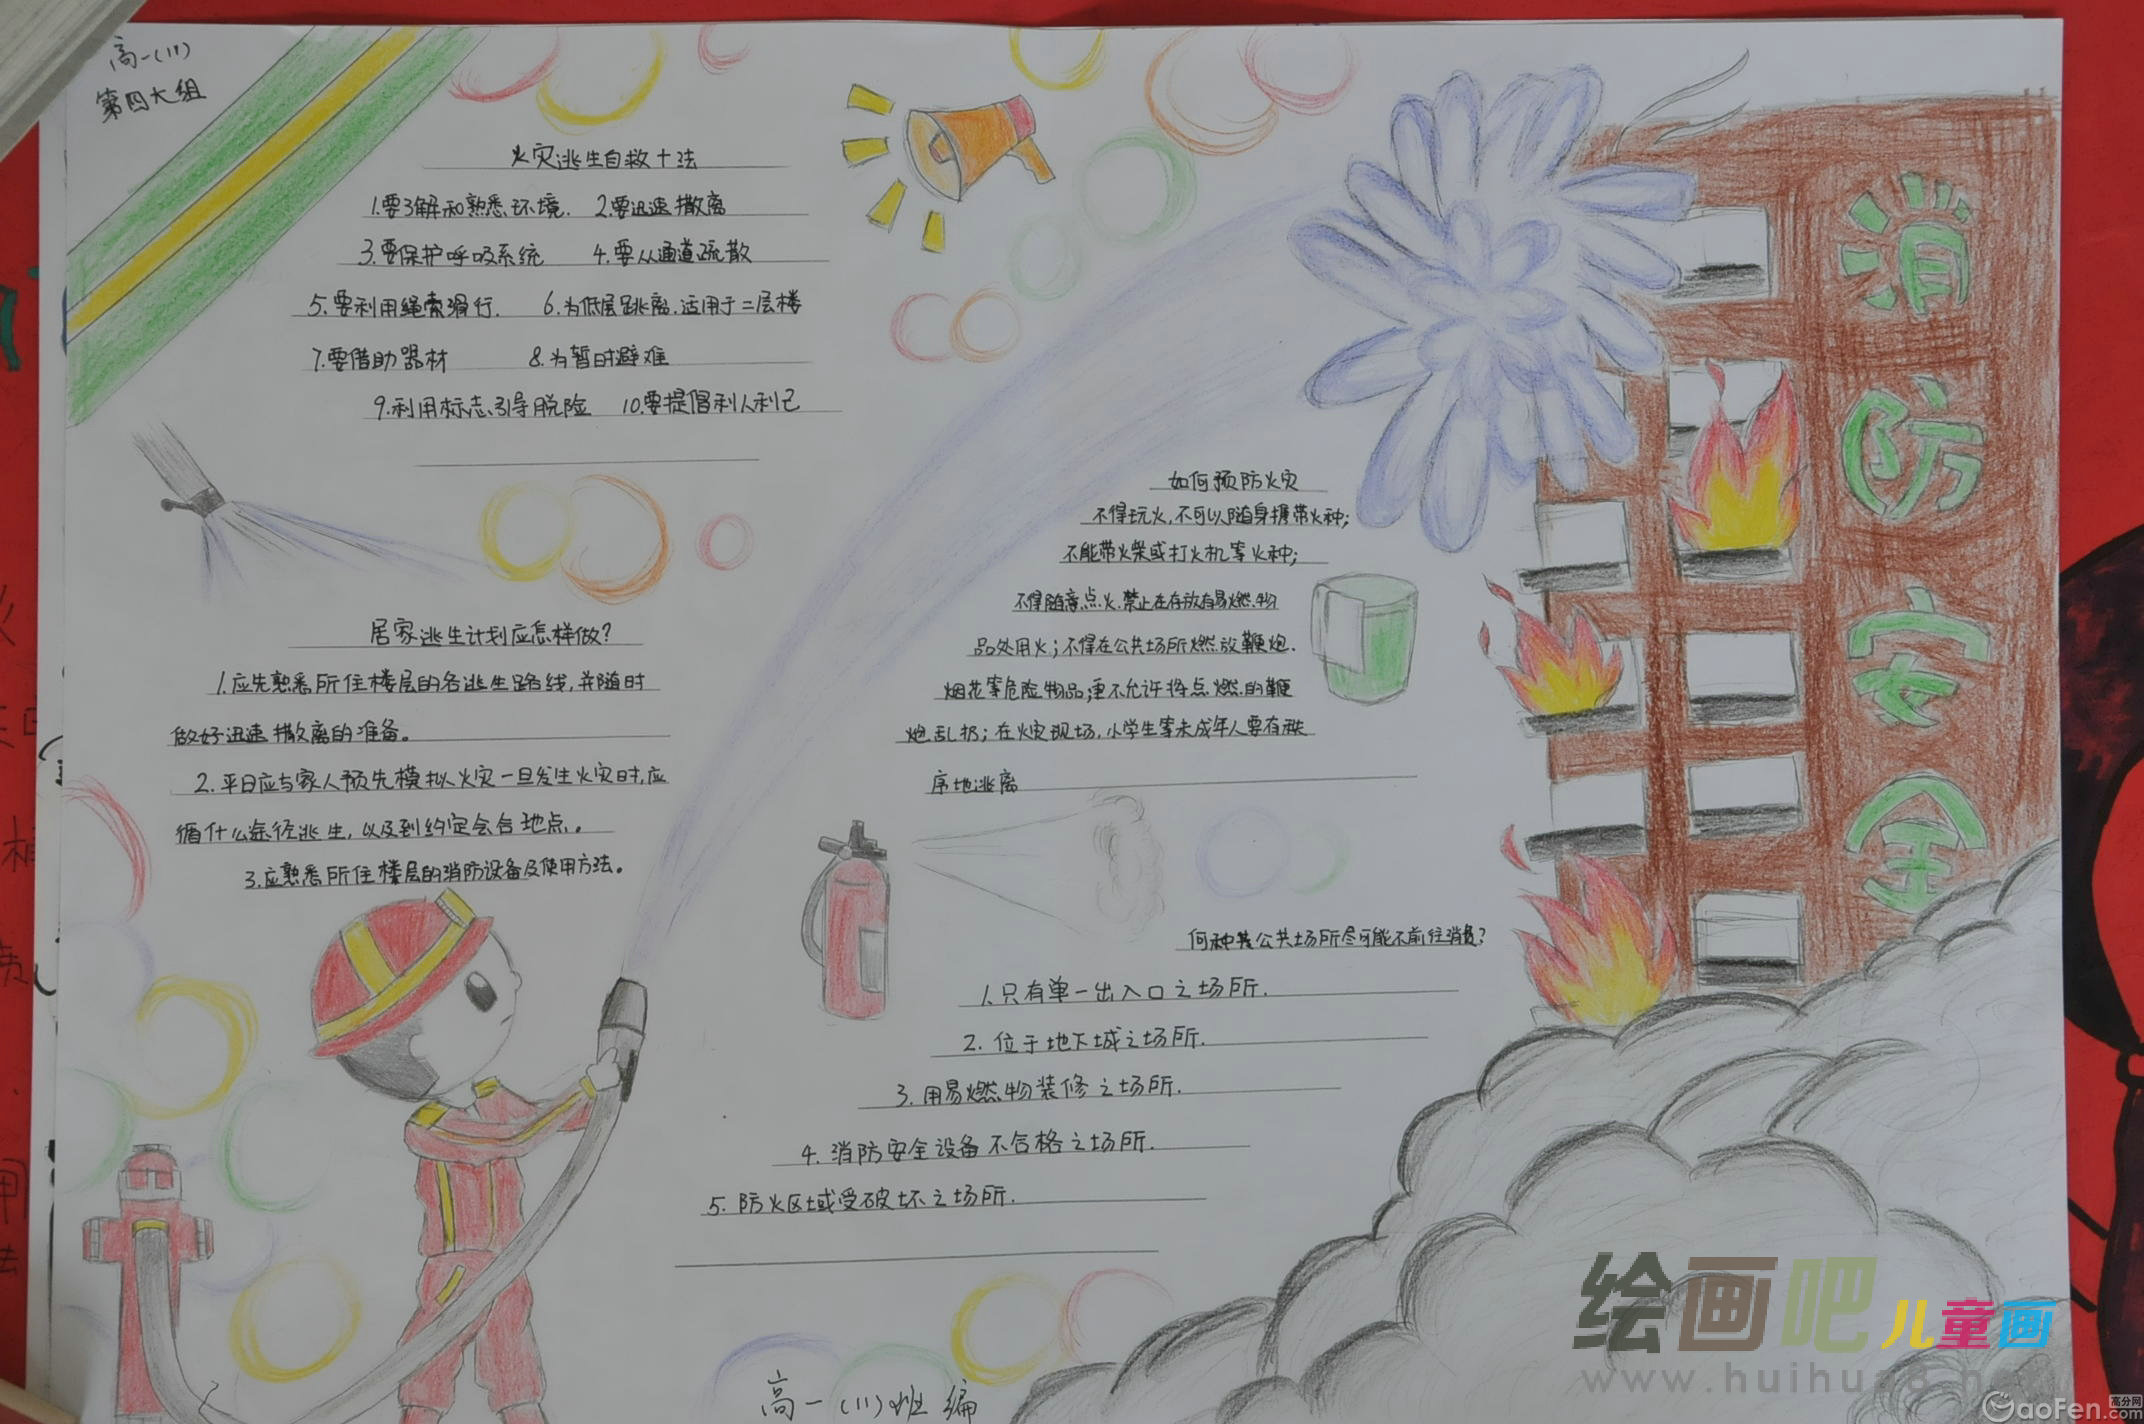 高一(11)
第四大组
火灾逃生自救十法
1.要了解和熟悉环境. 2.要迅速撒离
3.要保护呼吸系统 4.要从通道疏散
5.要利用绳索滑行. 6.为低层跳离.适用于二层楼
7.要借助器材 8.为暂时避难
9.利用标志引导脱险 10.要提倡利人利己
居家逃生计划应怎样做?
1.应先熟悉所住楼层的各逃生路线,并随时
做好迅速撒离的准备。
2.平日应与家人预先模拟火灾一旦发生火灾时,应
循什么途径逃生,以及到约定会合地点。
3.应熟悉所住楼层的消防设备及使用方法。
如何预防火灾
不得玩火,不可以随身携带火种;
不能带火柴或打火机等火种;
不得随意点火.禁止在存放有易燃物
品处用火;不得在公共场所燃放鞭炮.
烟花等危险物品;更不允许将点燃的鞭
炮乱扔;在火灾现场,小学生等未成年人要有秩
序地逃离
何种共公共场所尽可能不前往消费?
1.只有单一出入口之场所.
2.位于地下城之场所.
3.用易燃物装修之场所.
4.消防安全设备不合格之场所.
5.防火区域受破坏之场所.
消
防
安
全
高一(11)班编
绘画吧儿童画
www.huihua8.net
GaoFen.com
高分网